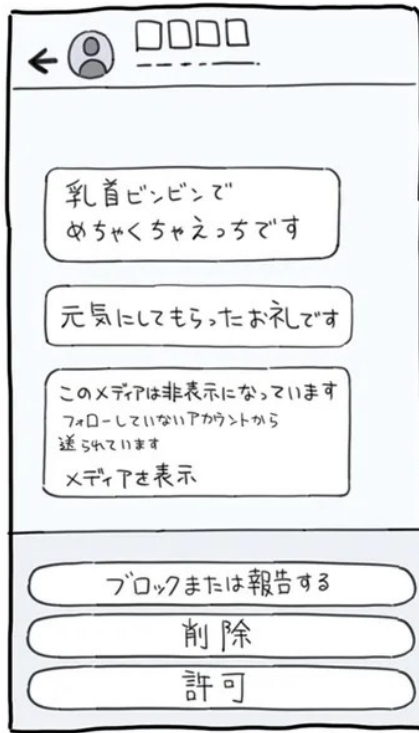 乳首ビンビンで
めちゃくちゃえっちです
元気にしてもらったお礼です
このメディアは非表示になっています
フォローしていないアカウントから
送られています
メディアを表示
ブロックまたは報告する
削除
許可